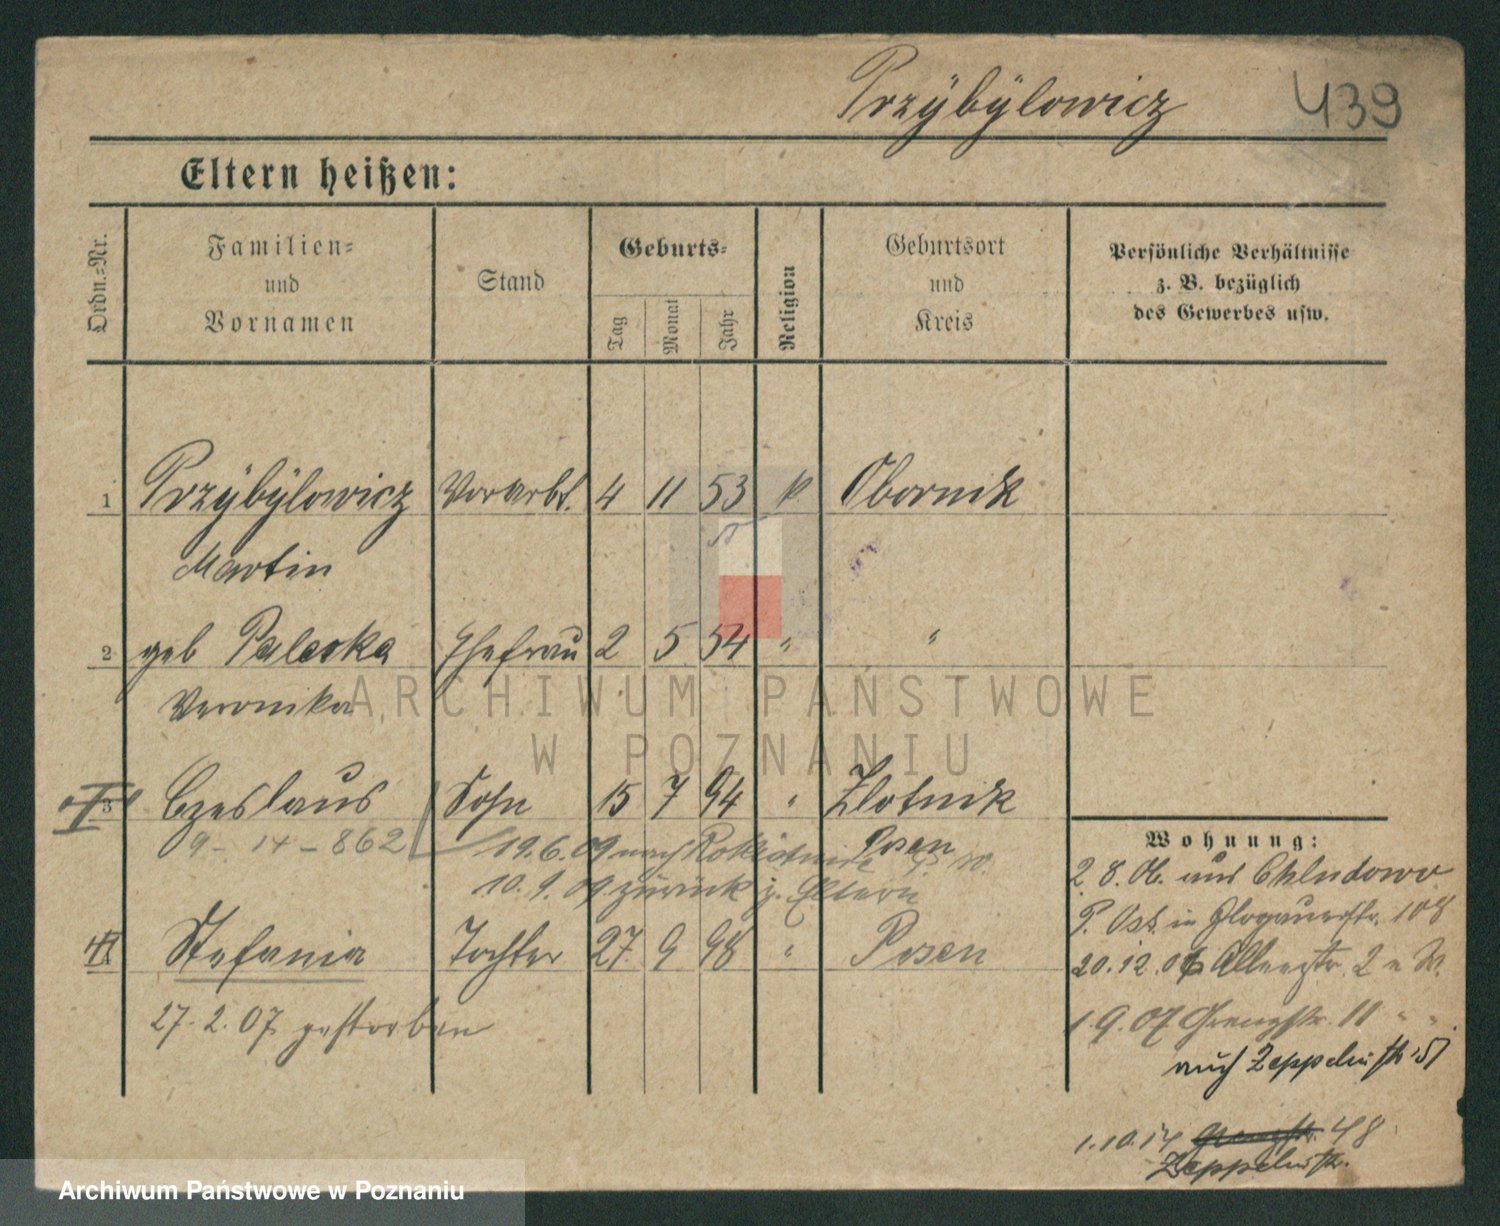 Przÿbÿlowicz 439
Eltern heißen:
Ordn.-Nr.
Familien-
und
Vornamen
Stand
Geburts-
Tag
Monat
Jahr
Religion
Geburtsort
und
Kreis
Persönliche Verhältnisse
z. B. bezüglich
des Gewerbes usw.
1 Przÿbÿlowicz Vorarbt. 4 11 53 k Obornik
Martin
2 geb Ehefrau 2 5 54 " "
Veronika
3 Czeslaus Sohn 15 7 94 " Zlotnik
Posen
9 - 14 - 862
19.6.09 nach Rokietnica P. W.
10.9.09 zurück z. Eltern
4 Stefania Tochter 27 9 98 " Posen
27.2.07 gestorben
Wohnung:
2 8.06. aus Chludowo
P. Ost. in Glogauerstr. 108
20.12.06 2 W.
1 9.07 Grenzstr. 11 " "
auch Zeppelinstr 51
1.10.14 Grenzstr. 48
Zeppelinstr.
ARCHIWUM PAŃSTWOWE
W POZNANIU
Archiwum Państwowe w Poznaniu